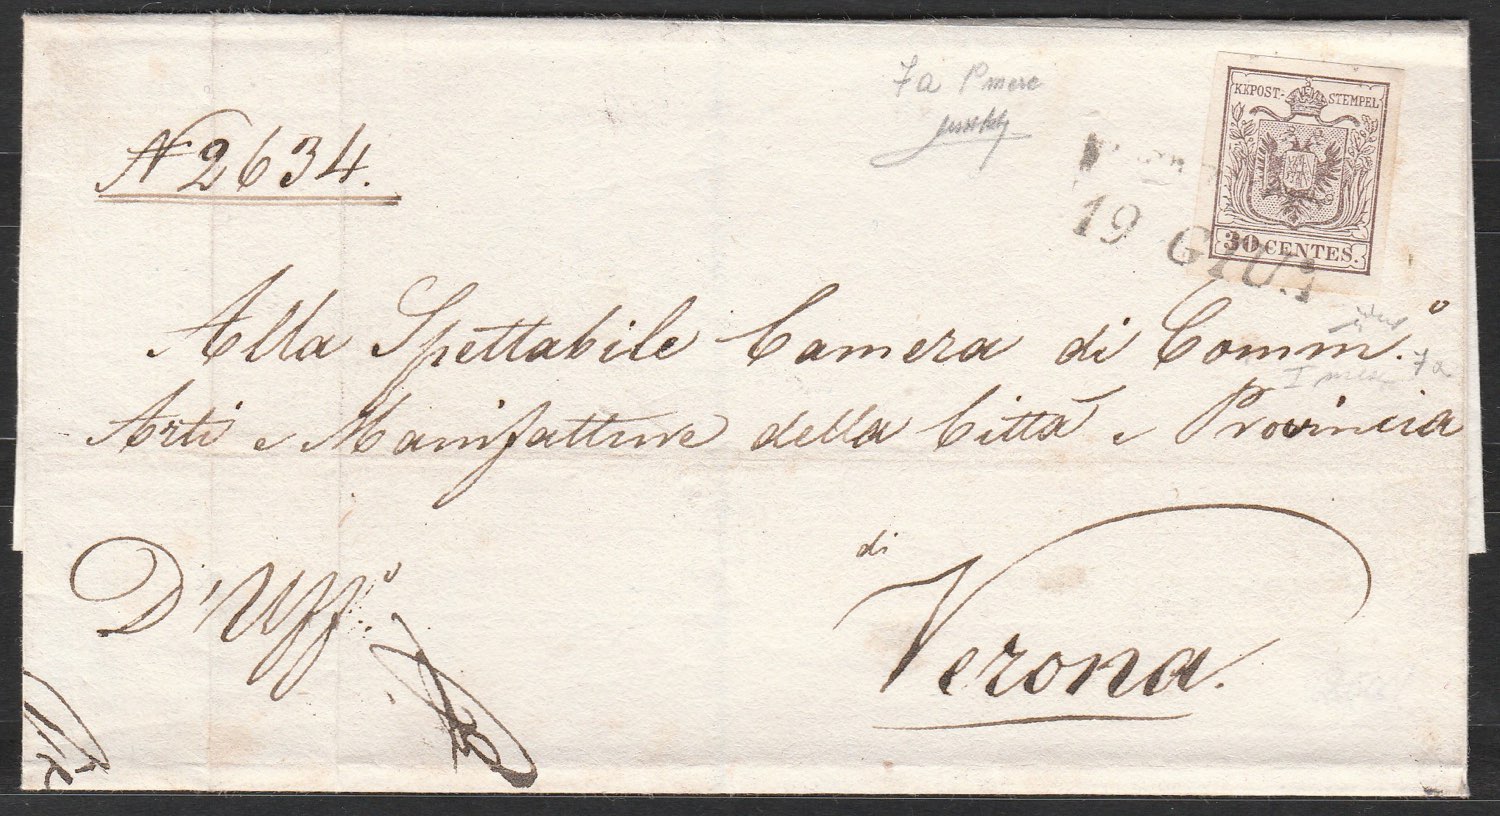 N 2634.
7a I° mese
KKPOST-STEMPEL
30 CENTES.
19 GIU.
Alla Spettabile Camera di Comm.º
7a
I mese
Arti e Manifatture della Città e Provincia
di
Verona.
D'Uffº.